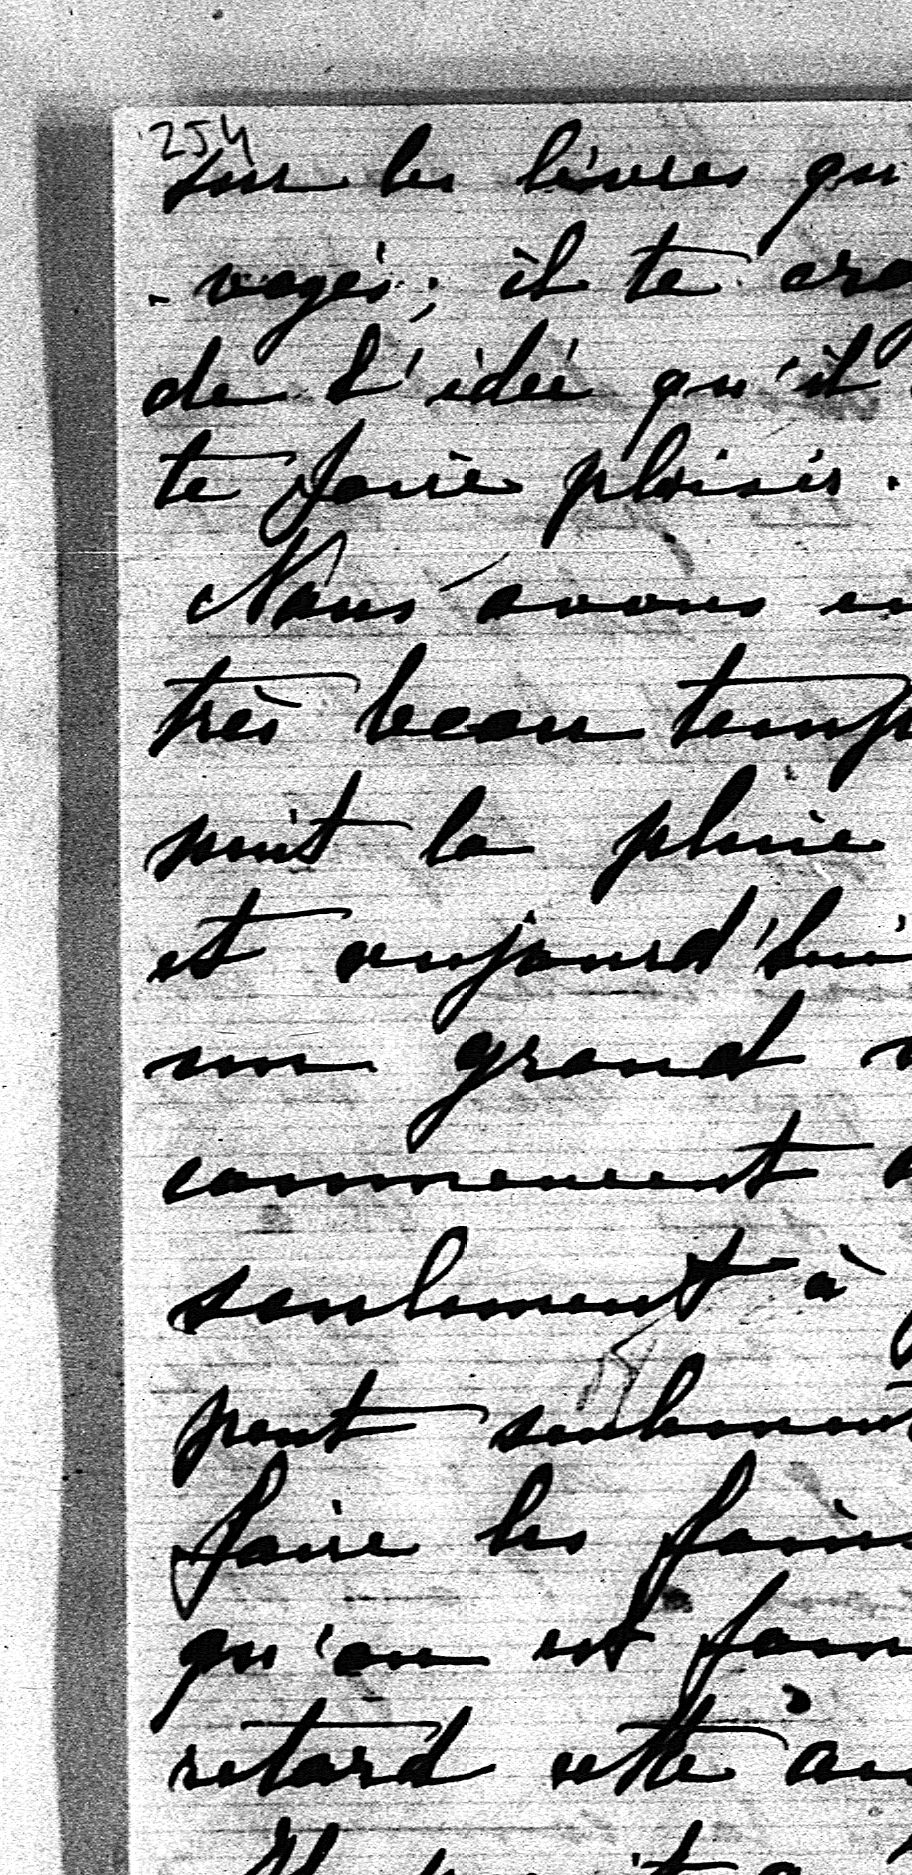 254
sur les livres qu
- voyés; il te
de l'idée qu'il
te faire plaisir.
Nous avons
très beau temps
puit la pluie
et aujourd'hui
un grand
commencent
seulement à
peut seulement
faire les foins
qu'on est
retard cette
Il